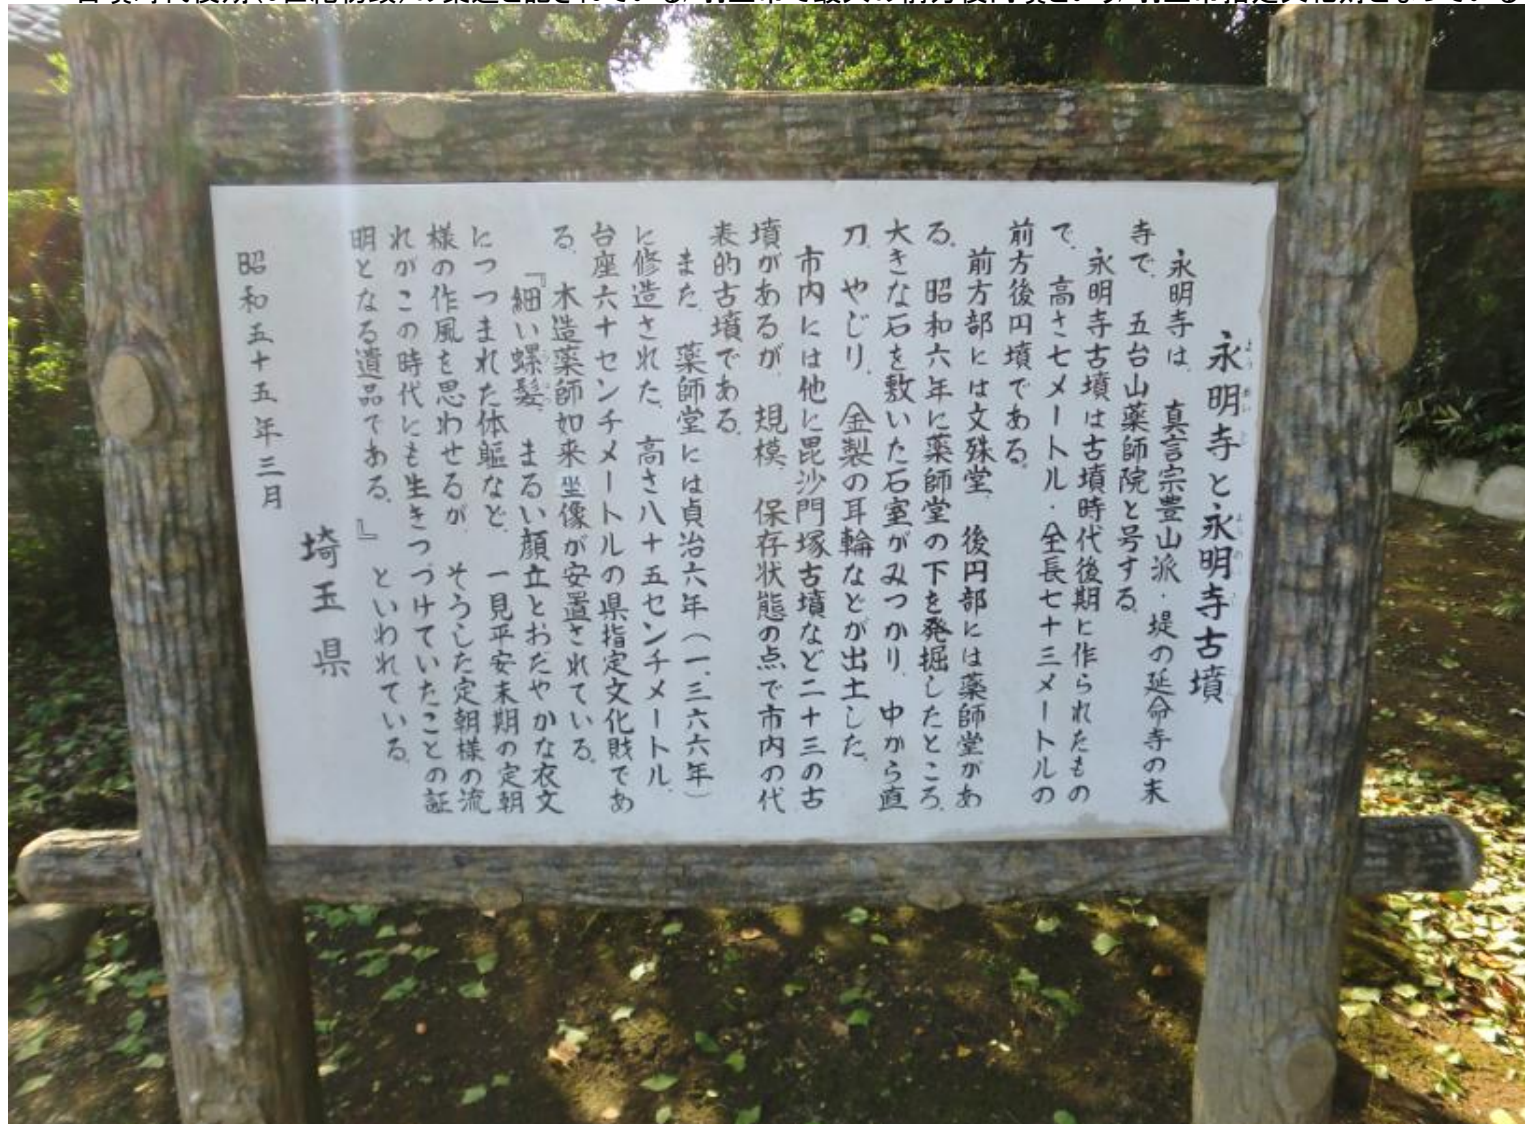 永明寺と永明寺古墳
永明寺は、真言宗豊山派・堤の延命寺の末
寺で、五台山薬師院と号する。
永明寺古墳は古墳時代後期に作られたもの
で、高さ七メートル・全長七十三メートルの
前方後円墳である。
前方部には文殊堂、後円部には薬師堂があ
る。昭和六年に薬師堂の下を発掘したところ、
大きな石を敷いた石室がみつかり、中から直
刀、やじり、金製の耳輪などが出土した。
市内には他に毘沙門塚古墳など二十三の古
墳があるが、規模、保存状態の点で市内の代
表的古墳である。
また、薬師堂には貞治六年（一、三六六年）
に修造された、高さ八十五センチメートル、
台座六十センチメートルの県指定文化財であ
る、木造薬師如来坐像が安置されている。
『細い螺髪、まるい顔立とおだやかな衣文
につつまれた体軀など、一見平安末期の定朝
様の作風を思わせるが、そうした定朝様の流
れがこの時代にも生きつづけていたことの証
明となる遺品である。』といわれている。
昭和五十五年三月
埼玉県